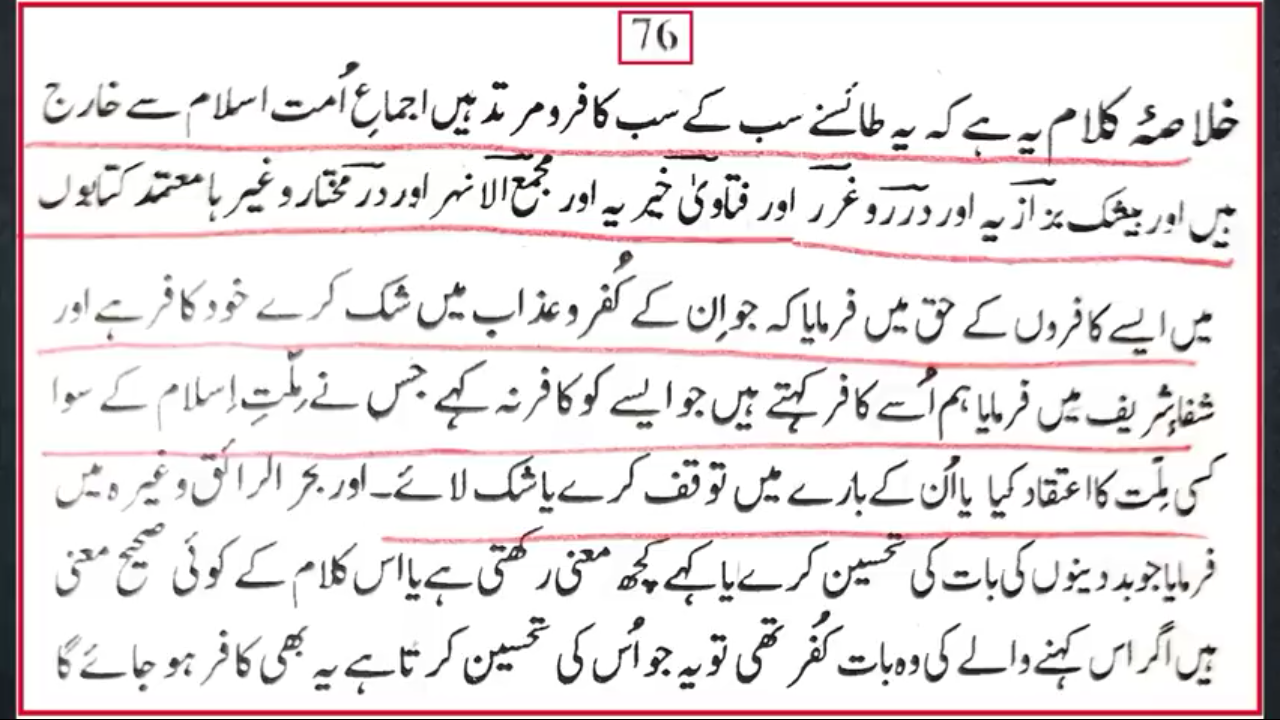 76
خلاصۂ کلام یہ ہے کہ یہ طائفے سب کے سب کافر و مرتد ہیں اجماعِ اُمت اسلام سے خارج
ہیں اور بیشک بزازیہ اور درر و غرر اور فتاویٰ خیریہ اور مجمع الانہر اور در مختار وغیرہا معتمد کتابوں
میں ایسے کافروں کے حق میں فرمایا کہ جو اِن کے کُفر و عذاب میں شک کرے خود کافر ہے اور
شفاءِ شریف میں فرمایا ہم اُسے کافر کہتے ہیں جو ایسے کو کافر نہ کہے جس نے مِلّتِ اِسلام کے سوا
کسی مِلّت کا اعتقاد کیا یا اُن کے بارے میں توقف کرے یا شک لائے۔ اور بحر الرائق وغیرہ میں
فرمایا جو بد دینوں کی بات کی تحسین کرے یا کہے کچھ معنی رکھتی ہے یا اس کلام کے کوئی صحیح معنی
ہیں اگر اس کہنے والے کی وہ بات کُفر تھی تو یہ جو اُس کی تحسین کرتا ہے یہ بھی کافر ہو جائے گا